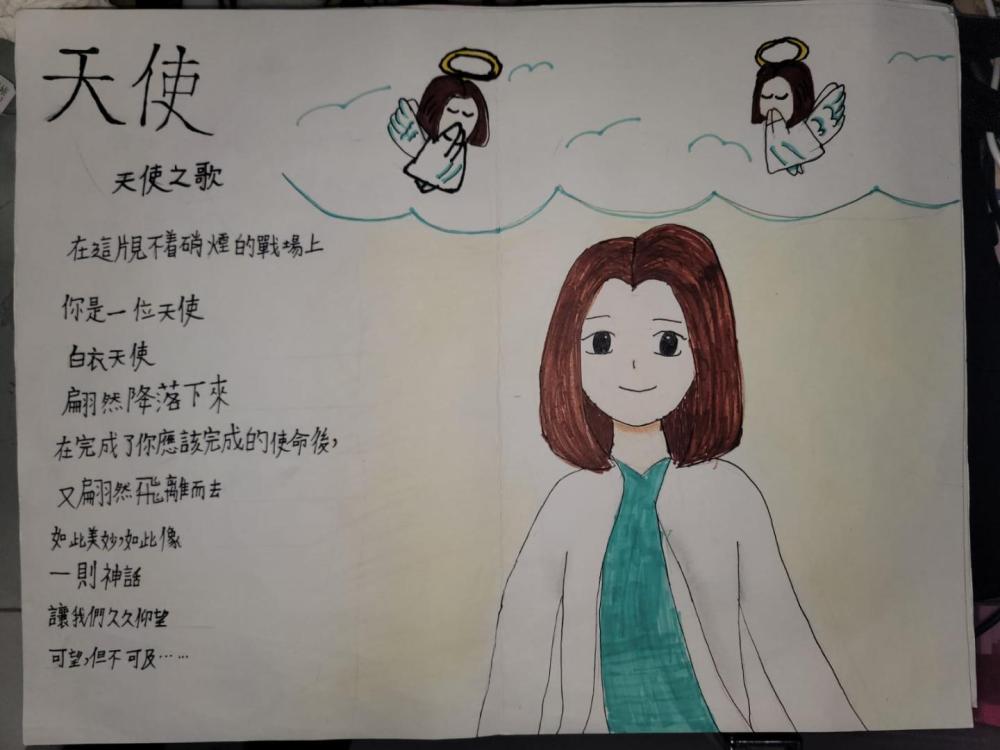 天使
天使之歌
在這片見不着硝煙的戰場上
你是一位天使
白衣天使
翩然降落下來
在完成了你應該完成的使命後，
又翩然飛離而去
如此美妙，如此像
一則神話
讓我們久久仰望
可望，但不可及……